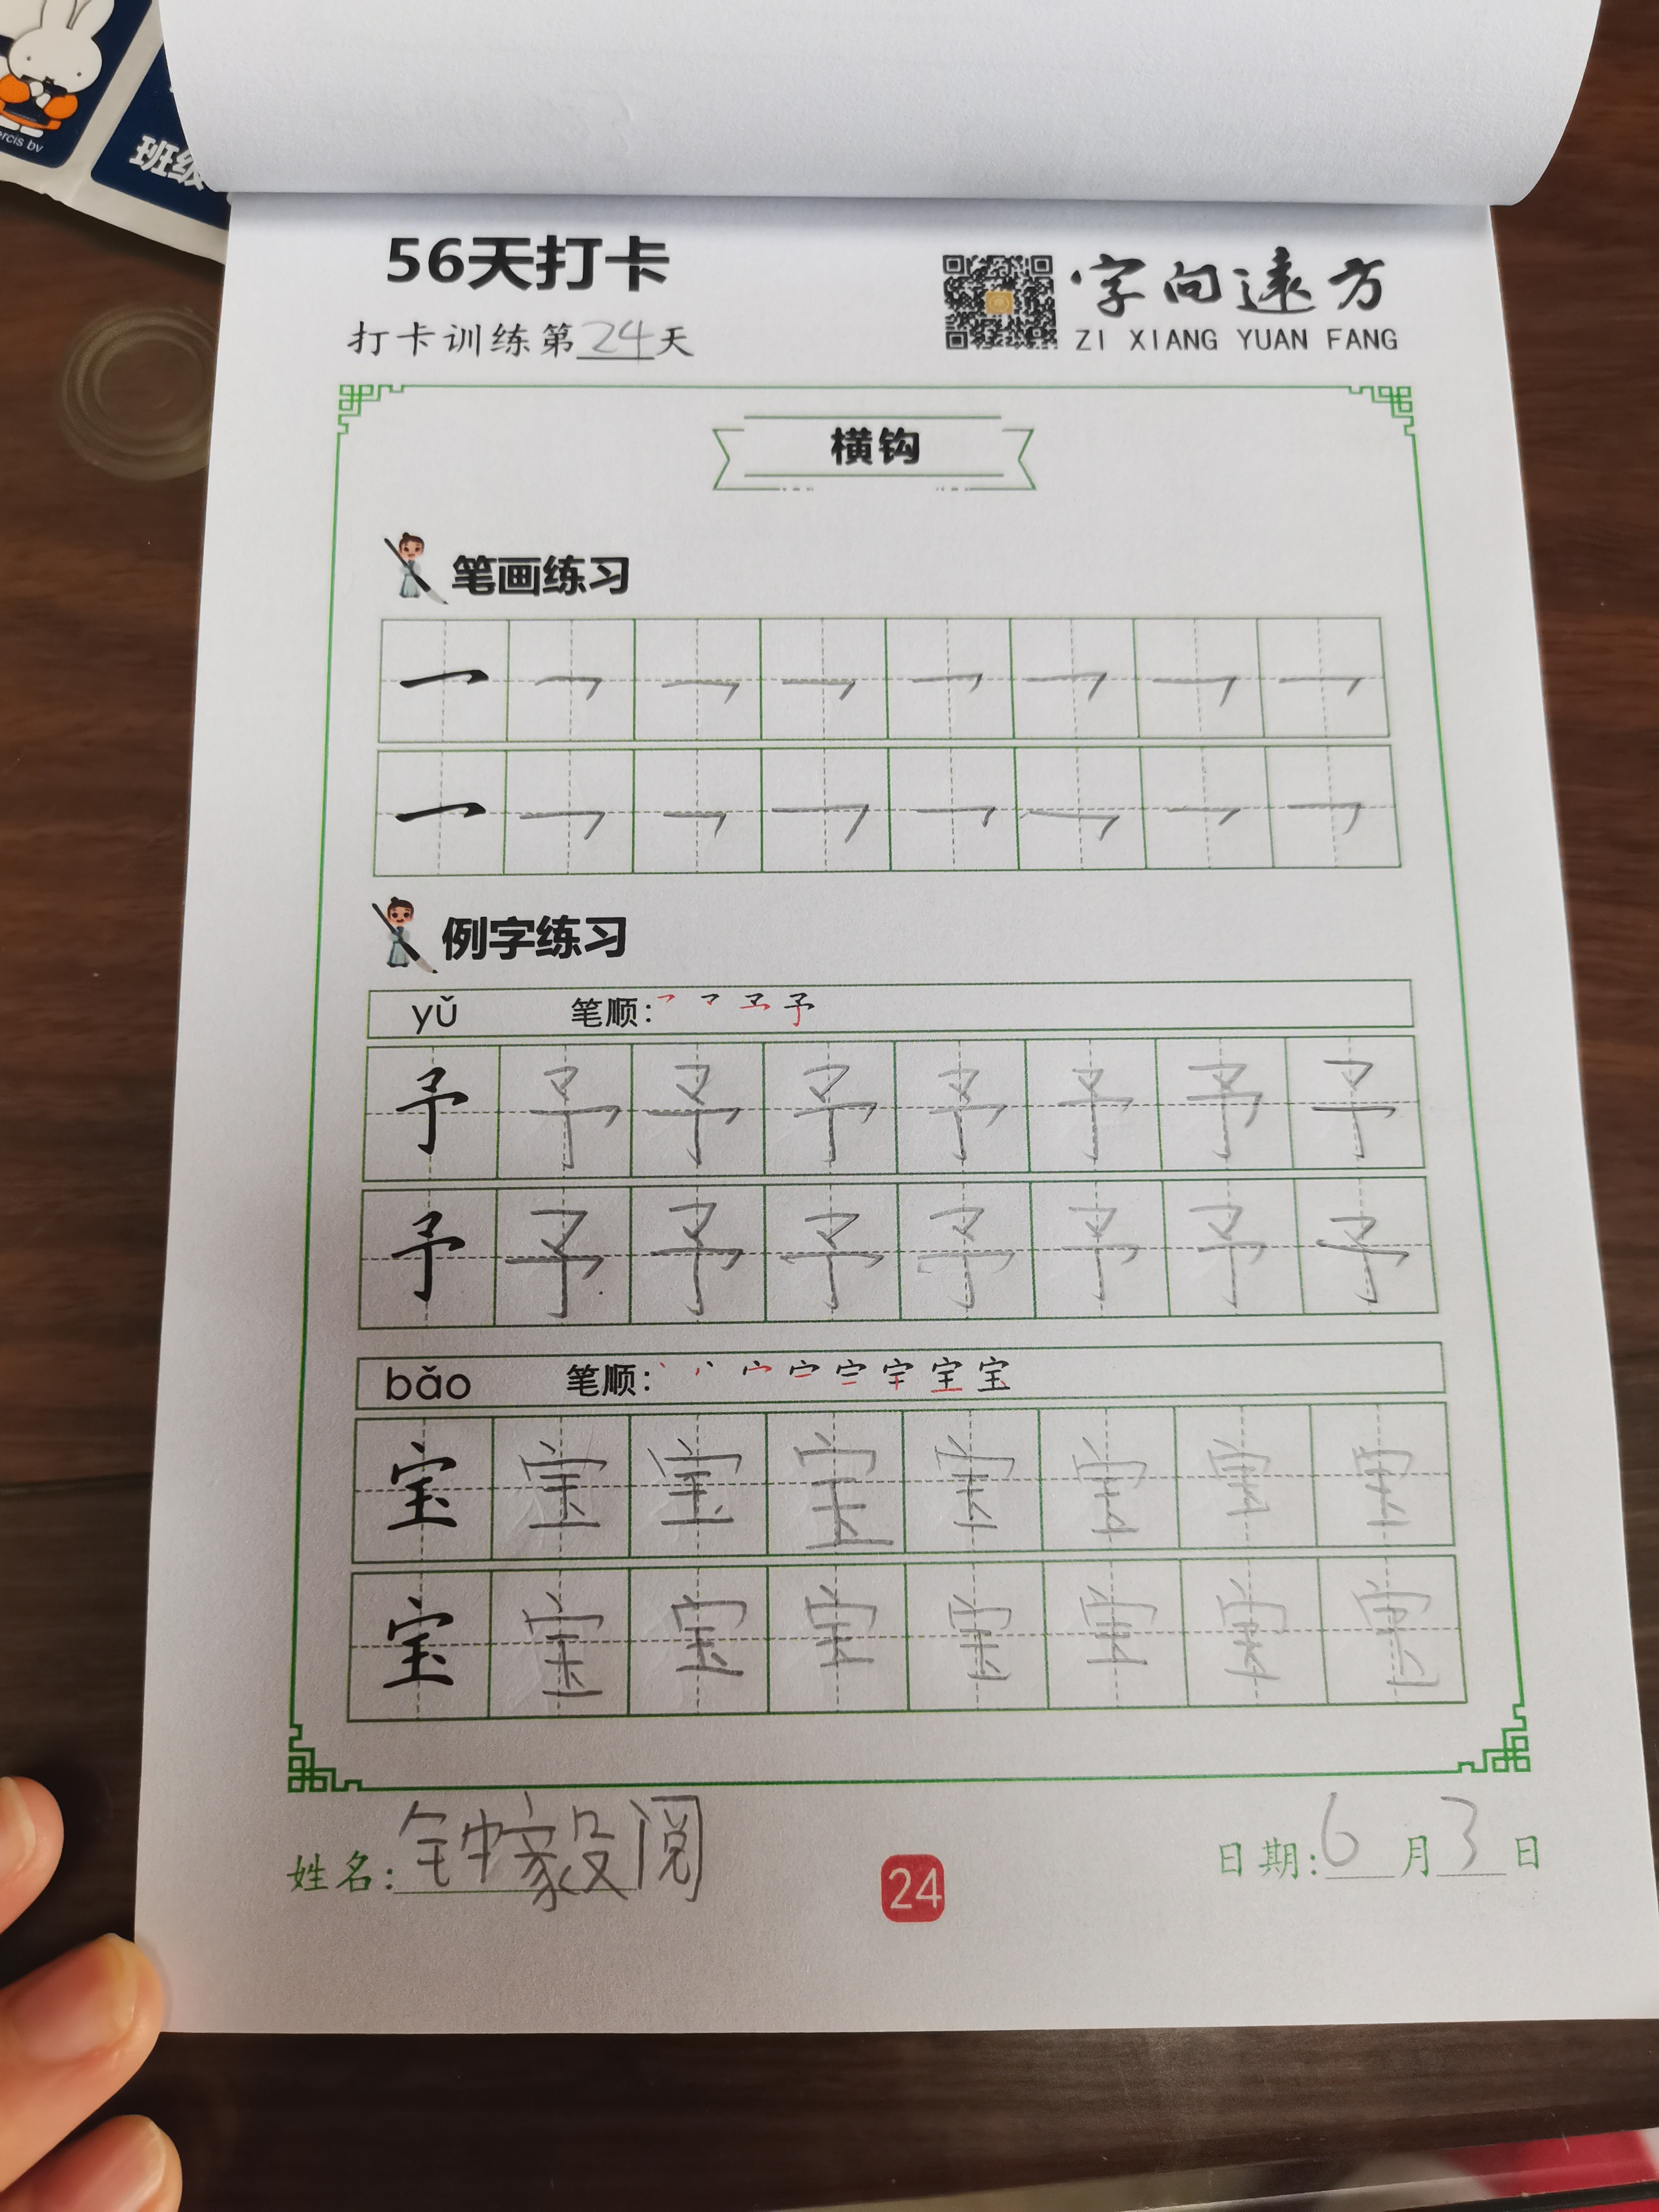 ercis bv
班级
56天打卡
打卡训练第24天
字向遠方
ZI XIANG YUAN FANG
横钩
笔画练习
㇖ ㇖ ㇖ ㇖ ㇖ ㇖ ㇖ ㇖
㇖ ㇖ ㇖ ㇖ ㇖ ㇖ ㇖ ㇖
例字练习
yǔ 笔顺: 予
予 予 予 予 予 予 予 予
予 予 予 予 予 予 予 予
bǎo 笔顺: 宝
宝 宝 宝 宝 宝 宝 宝 宝
宝 宝 宝 宝 宝 宝 宝 宝
姓名: 钟家阅
24
日期: 6月3日